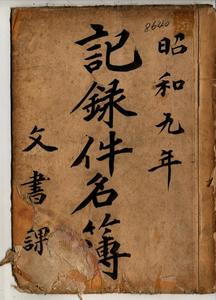 8640
昭和九年
記録件名簿
文書課